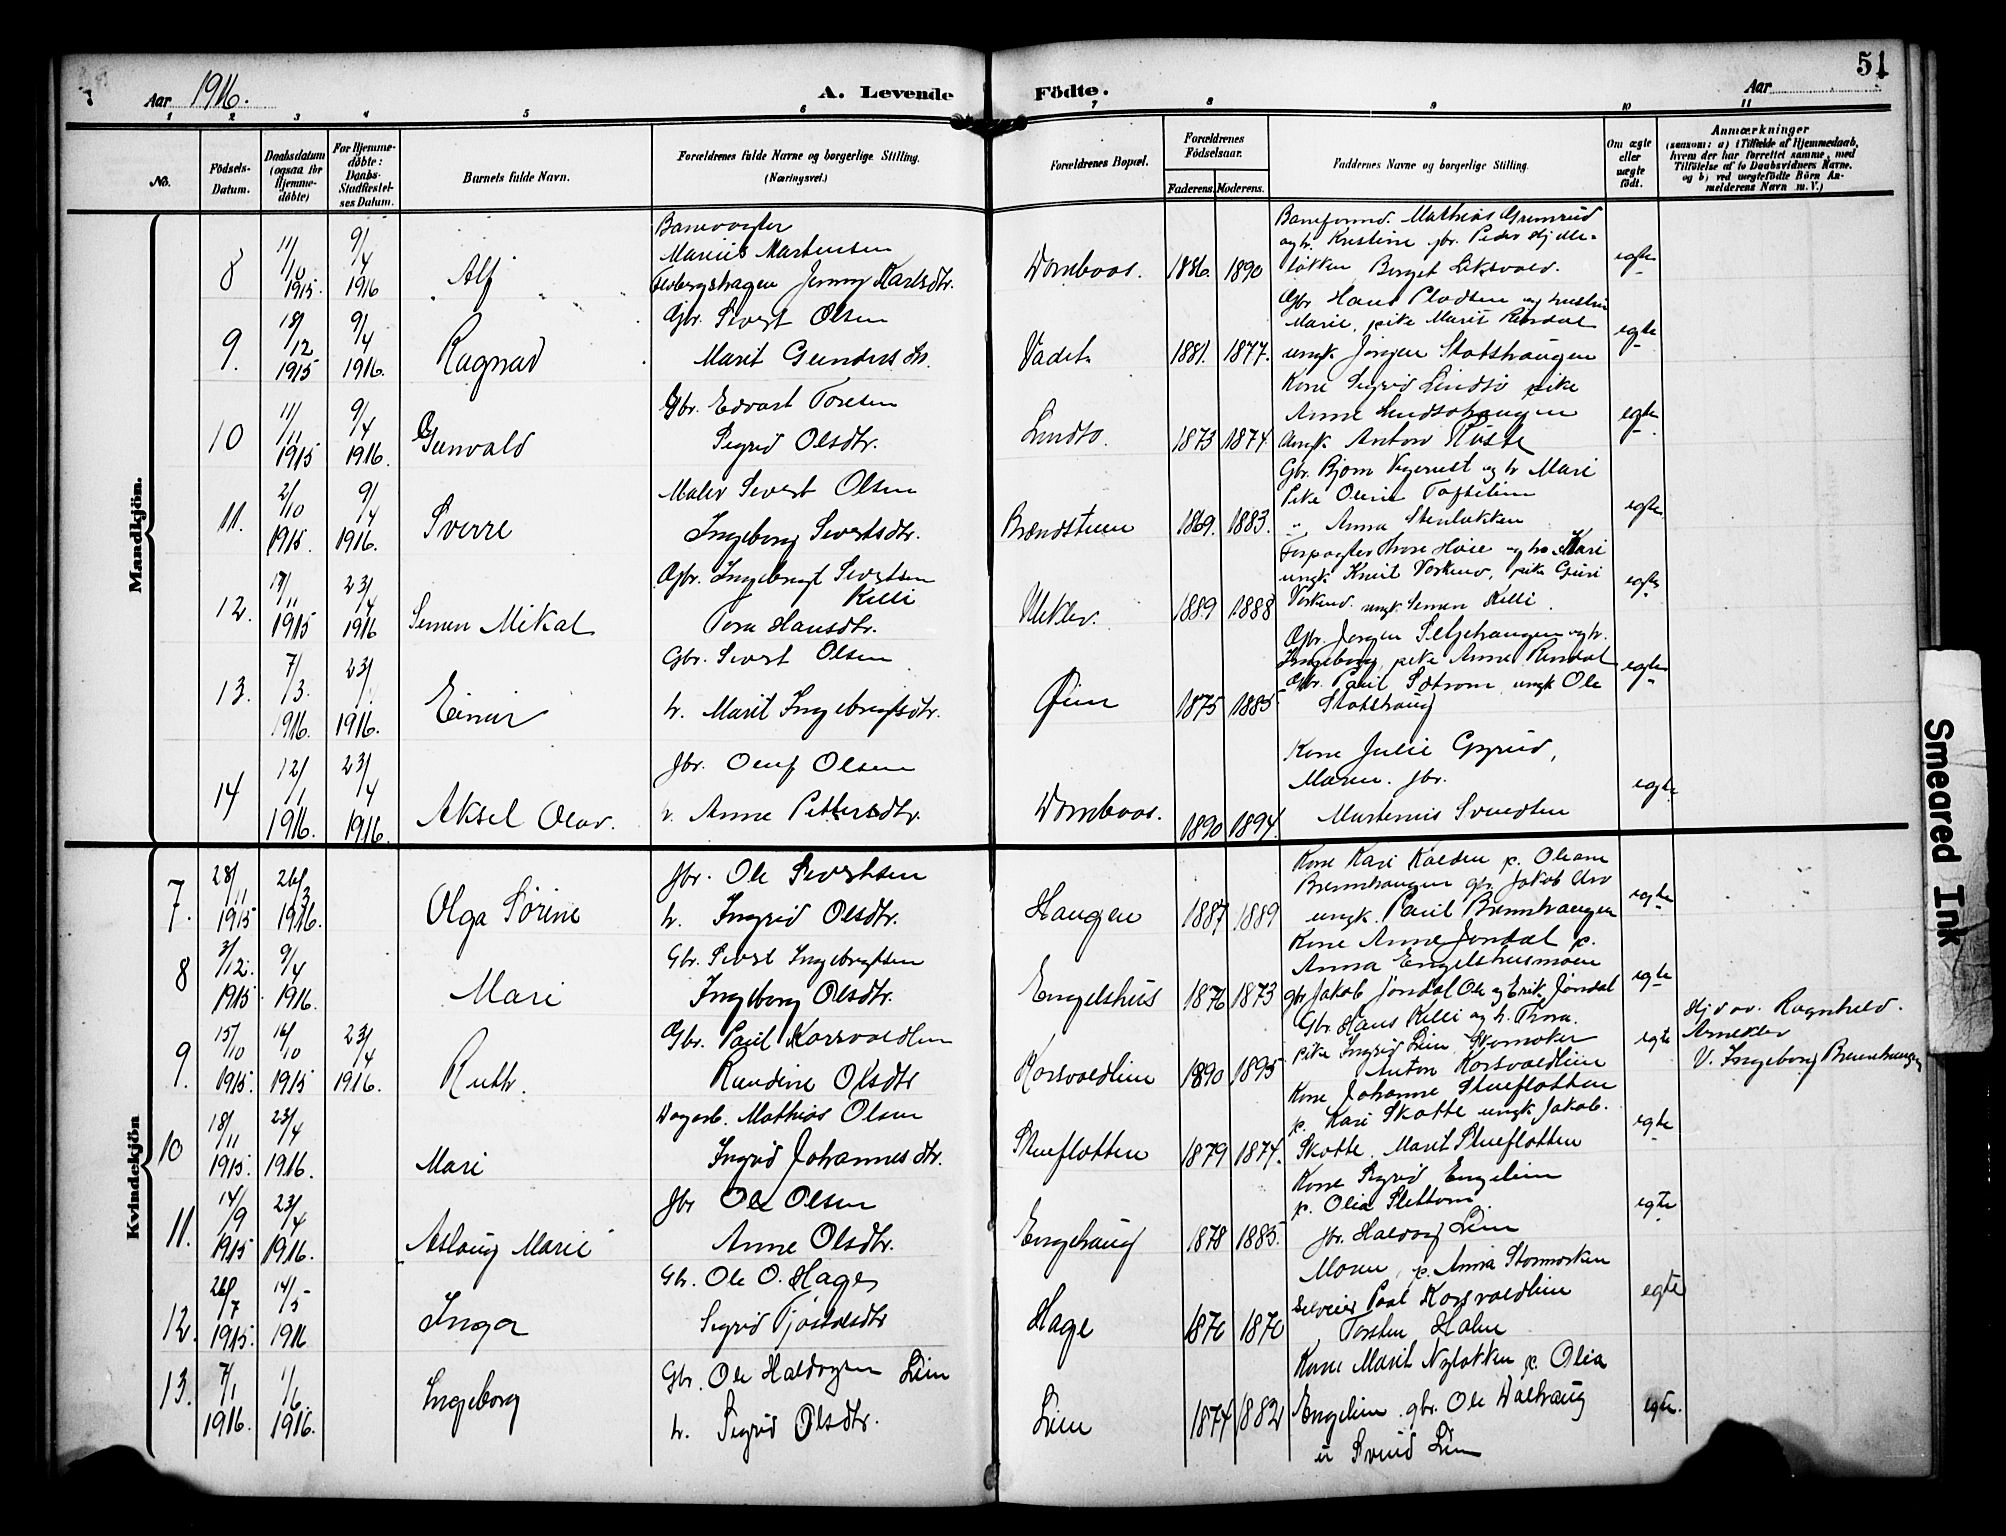 51
Aar 1916.
A. Levende Födte.
Aar
1 2 3 4 5 6 7 8 9 10 11
No.
Födsels-Datum.
Daabsdatum (ogsaa for Hjemme-döbte)
For Hjemme-döbte: Daabs-Stadfæstel-ses Datum.
Barnets fulde Navn.
Forældrenes fulde Navne og borgerlige Stilling. (Næringsvei.)
Forældrenes Bopæl.
Forældrenes Födselsaar.
Faderens. Moderens.
Faddernes Navne og borgerlige Stilling.
Om ægte eller uægte födt.
Anmærkninger
(saasom: a) i Tilfælde af Hjemmedaab,
hvem der har forrettet samme, med
Tilföielse af to Daabsvidners Navne,
og b) ved uægtefödte Börn An-
melderens Navn m. V.)
Mandkjön.
8 11/10 1915. 9/4 1916 Alf
Banevogter
Marius Martensen
Jenny Karlsdtr.
Dombaas. 1886. 1890
Baneformd. Mathias Grimrud
og h. Kristine gbr. Peder Hjelle-
løkken Berget Liksvold.
egte
9. 18/12 1915 9/4 1916. Ragnar
Gbr. Sivert Olsen
Marit Gundersdtr.
1881. 1877.
Gbr Hans Plodsen og hustru
Marie, pike Marit Rindal
ungk Jørgen Slotshaugen
egte
10 11/11 1915 9/4 1916. Gunvald
Gbr. Edvart Toresen
Sigrid Olsdtr.
Lindso. 1873 1874
Kone Sigrid Lindsø pike
Anne Lindsøhaugen
Ungk Anton
egte
11. 2/10 1915. 9/4 1916. Sverre
Maler Sivert Olsen
Ingeborg Sivertsdtr.
Brændsteen 1869. 1883.
Gbr. Bjørn og h Mari
Pike Oline Toftelien
" Anna Stenløkken
egte.
12. 1915 23/4 1916 Simen Mikal
Gbr. Ingebrigt Sivertsen
Killi
Tora Hansdtr.
Uleklev. 1889 1888
Forpagter Thore Hoie og hs Kari
ungk Knut Vorkinn, pike Guri
Vorkinn. ungk. Simen Killi.
egte
13. 7/3. 1916. 23/ 1916. Einar
Gbr. Sivert Olsen
h. Marit Ingebrigtsdtr.
Øien 1875 1885
Gbr. Jørgen Seljehaugen og h.
Ingeborg, pike Anne Rindal
Gbr. Paul Sætrom, ungk Ole
Slotshaug
egte
14 12/1 1916. 23/4 1916. Aksel Olav.
Jbr. Oluf Olsen
h. Anne Pettersdtr.
Dombaas. 1890 1894.
Kone Julie Gyrud,
Maren. Jbr.
Martenius Svendsen
egte
Kvindekjön
7. 28/11 1915 26/3 1916. Olga Sørine
Jbr. Ole Sivertsen
h. Ingrid Olsdtr.
Haugen 1887 1889
Kone Kari Kolden p. Oliane
Brennhaugen gbr. Jakob Uro
ungk. Paul Brennhaugen
egte
8 3/12. 1915. 9/4 1916. Mari
Gbr. Sivert Ingebrigtsen
Ingeborg Olsdtr.
Engelshus 1876 1873
Kone Anne Jøndal p.
Anna Engelshusmoen
gbr Jakob Jøndal Ole og Erik Jøndal
egte
9. 15/10 1915. 16/10 1915 23/4 1916. Ruth.
Gbr. Paul Korsvoldlien
Randine Olsdtr
Korsvoldlien 1890 1895
Gbr. Hans Killi og h. Thora.
pike Ingrid Lien, Skomaker
Anton Korsvoldlien
egte
Hjd av. Ragnhild.
Arneklev
V. Ingeborg Brennhaugen
10 18/11 1915. 23/4 1916. Mari
Dagarb. Mathias Olsen
Ingrid Johannesdtr.
Stueflotten 1879 1874.
Kone Johanne Stueflotten
p. Kari Skotte ungk Jakob.
Skotte, Marit Stueflotten
egte
11. 14/9 1915 23/4 1916. Aslaug Marie
Jbr Ole Olsen
Anne Olsdtr.
Engehaug 1878 1885.
Kone Sigrid Engelien
p. Olia Slettom
Jbr. Haldog Lien
egte
12. 26/7 1915. 14/5 1916 Inga
Gbr. Ole O. Hage
Sigrid Tjostolsdtr
Hage 1870 1870
Moren, p. Anna Stormorken
Selveier Paal Korsvoldlien
Torsten Holen
egte
13. 7/1 1916. 1/6. 1916. Ingeborg
Gbr. Ole Haldogsen Lien
h. Sigrid Olsdtr.
Lien 1874 1882
Kone Marit Nyløkken p. Olia
Engelien gbr. Ole Dalhaug
u Svend Lien
egte.
Smeared Ink